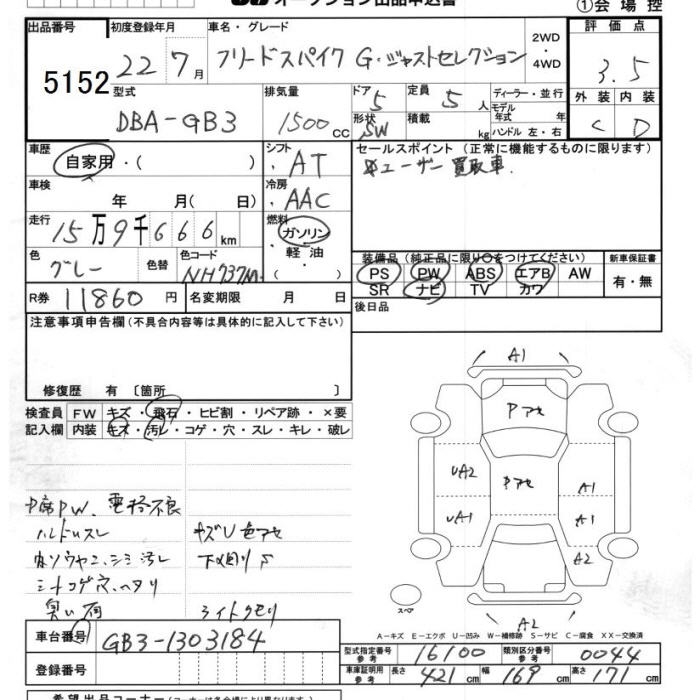 オークション出品申込書 ①会場控
出品番号 5152
初度登録年月 22年7月
車名・グレード フリードスパイク G・ジャストセレクション
2WD・4WD
評価点 3.5
外装 C 内装 D
型式 DBA-GB3
排気量 1500cc
ドア 5 形状 SW
定員 5人 積載 kg
ディーラー・並行
モデル年式 年式
ハンドル 左・右
車歴 自家用・( )
シフト AT
セールスポイント (正常に機能するものに限ります)
ユーザー買取車.
車検 年 月( 日)
冷房 AAC
走行 15万9千666km
燃料 ガソリン・軽油・( )
色 グレー 色替 色コード NH737M
装備品 (純正品に限り○をつけてください)
PS PW ABS エアB AW
SR ナビ TV カワ
新車保証書 有・無
R券 11860円 名変期限 月 日
後日品
注意事項申告欄 (不具合内容等は具体的に記入して下さい)
修復歴 有 〔箇所 〕
検査員記入欄
FW キズ・飛石・ヒビ割・リペア跡・×要
内装 キズ・汚レ・コゲ・穴・スレ・キレ・破レ
A1
Pアセ
UA2 Pアセ A1
UA1 A1
A2
スペア
A2
P席PW、電格不良
ハルドルスレ キズU色アセ
シミ汚レ 下メ割レ
シートコゲ穴、ヘタリ
臭い有 ライトクモリ
A－キズ E－エクボ U－凹み W－補修跡 S－サビ C－腐食 XX－交換済
車台番号 GB3-1303184
型式指定番号 参考 16100 類別区分番号 参考 0044
登録番号
車庫証明用 参考 長さ 421cm 幅 169cm 高さ 171cm
希望出品コーナー